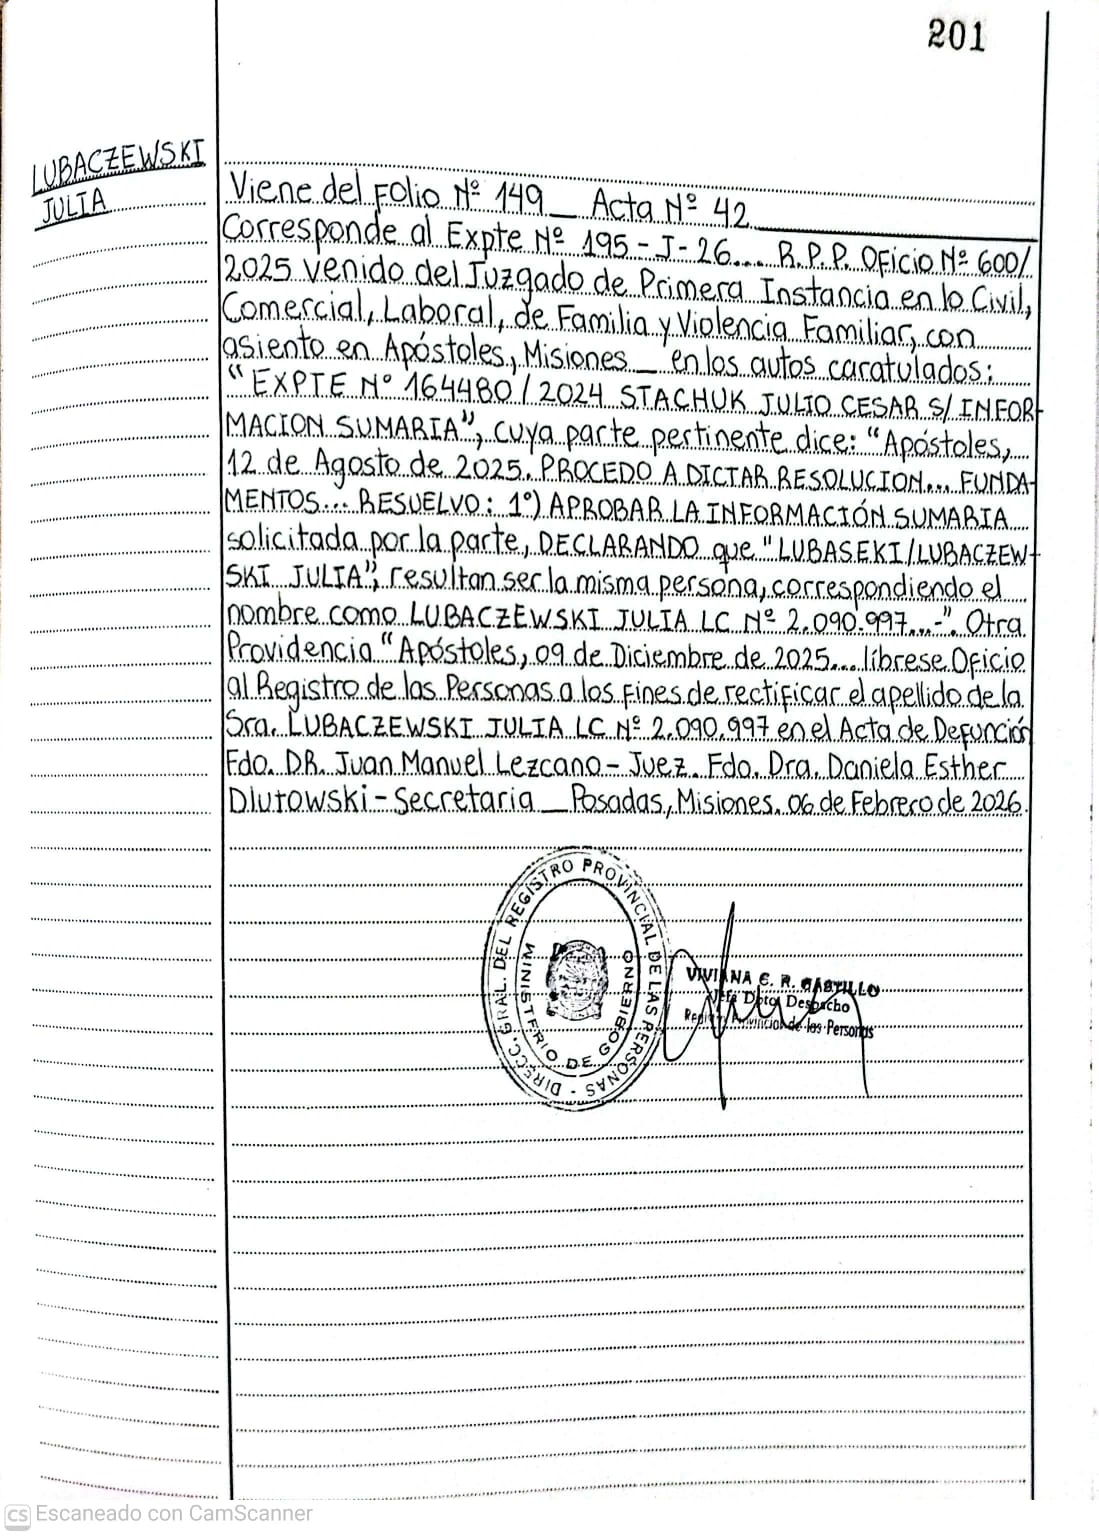 201
LUBACZEWSKI
JULIA
Viene del Folio Nº 149_ Acta Nº 42
Corresponde al Expte Nº 195-J-26... R.P.P. Oficio Nº 600/
2025 venido del Juzgado de Primera Instancia en lo Civil,
Comercial, Laboral, de Familia y Violencia Familiar, con
asiento en Apóstoles, Misiones_ en los autos caratulados:
"EXPTE Nº 164480/2024 STACHUK JULIO CESAR S/INFOR-
MACION SUMARIA", cuya parte pertinente dice: "Apóstoles,
12 de Agosto de 2025. PROCEDO A DICTAR RESOLUCION... FUNDA-
MENTOS... RESUELVO: 1º) APROBAR LA INFORMACIÓN SUMARIA
solicitada por la parte, DECLARANDO que "LUBASEKI/LUBACZEW-
SKI JULIA", resultan ser la misma persona, correspondiendo el
nombre como LUBACZEWSKI JULIA LC Nº 2.090.997...-". Otra
Providencia "Apóstoles, 09 de Diciembre de 2025... líbrese Oficio
al Registro de las Personas a los fines de rectificar el apellido de la
Sra. LUBACZEWSKI JULIA LC Nº 2.090.997 en el Acta de Defunción
Fdo. DR. Juan Manuel Lezcano - Juez. Fdo. Dra. Daniela Esther
Dlutowski - Secretaria _ Posadas, Misiones. 06 de Febrero de 2026.
DIRECC. GRAL. DEL REGISTRO PROVINCIAL DE LAS PERSONAS -
MINISTERIO DE GOBIERNO
VIVIANA C. R. CASTILLO
Jefa Dpto. Despacho
Registro Provincial de las Personas
CS Escaneado con CamScanner